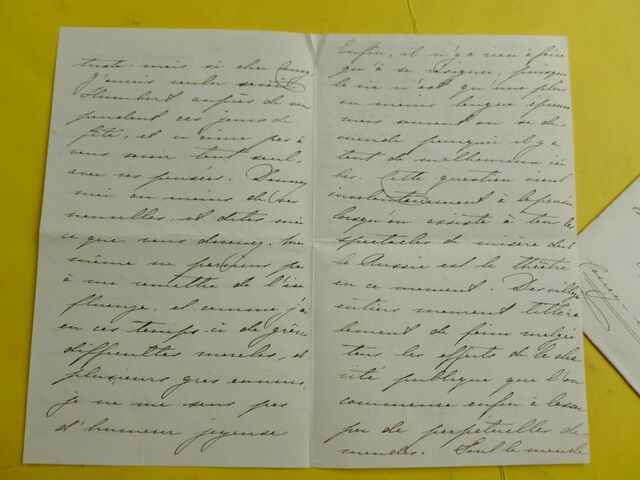 triste, mais si cher
J'aurais voulu savoir
Humbert auprès de vous
pendant ces jours de
fête, et n'aime pas à
vous savoir tout seul,
avec vos pensées. Donnez
moi au moins de vos
nouvelles, et dites moi
ce que vous devenez. Moi
même ne parviens pas
à me remettre de l'in
fluenza, et comme j'ai
en ces temps-ci de grandes
difficultés morales, et
plusieurs gros ennuis,
je ne me sens pas
d'humeur joyeuse
Enfin, il n'y a rien à faire
qu'à se résigner, puisque
la vie n'est qu'une plus
ou moins longue épreuve
mais souvent on se de
mande pourquoi il y a
tant de malheureux ici
bas. Cette question vient
involontairement à la pensée
lorsqu'on assiste à tous les
spectacles de misère dont
la Russie est le théâtre
en ce moment. Des villages
entiers meurent littéra
lement de faim malgré
tous les efforts de la cha
rité publique que l'on
commence enfin à lasser
par de perpétuelles de
mandes. Tout le monde